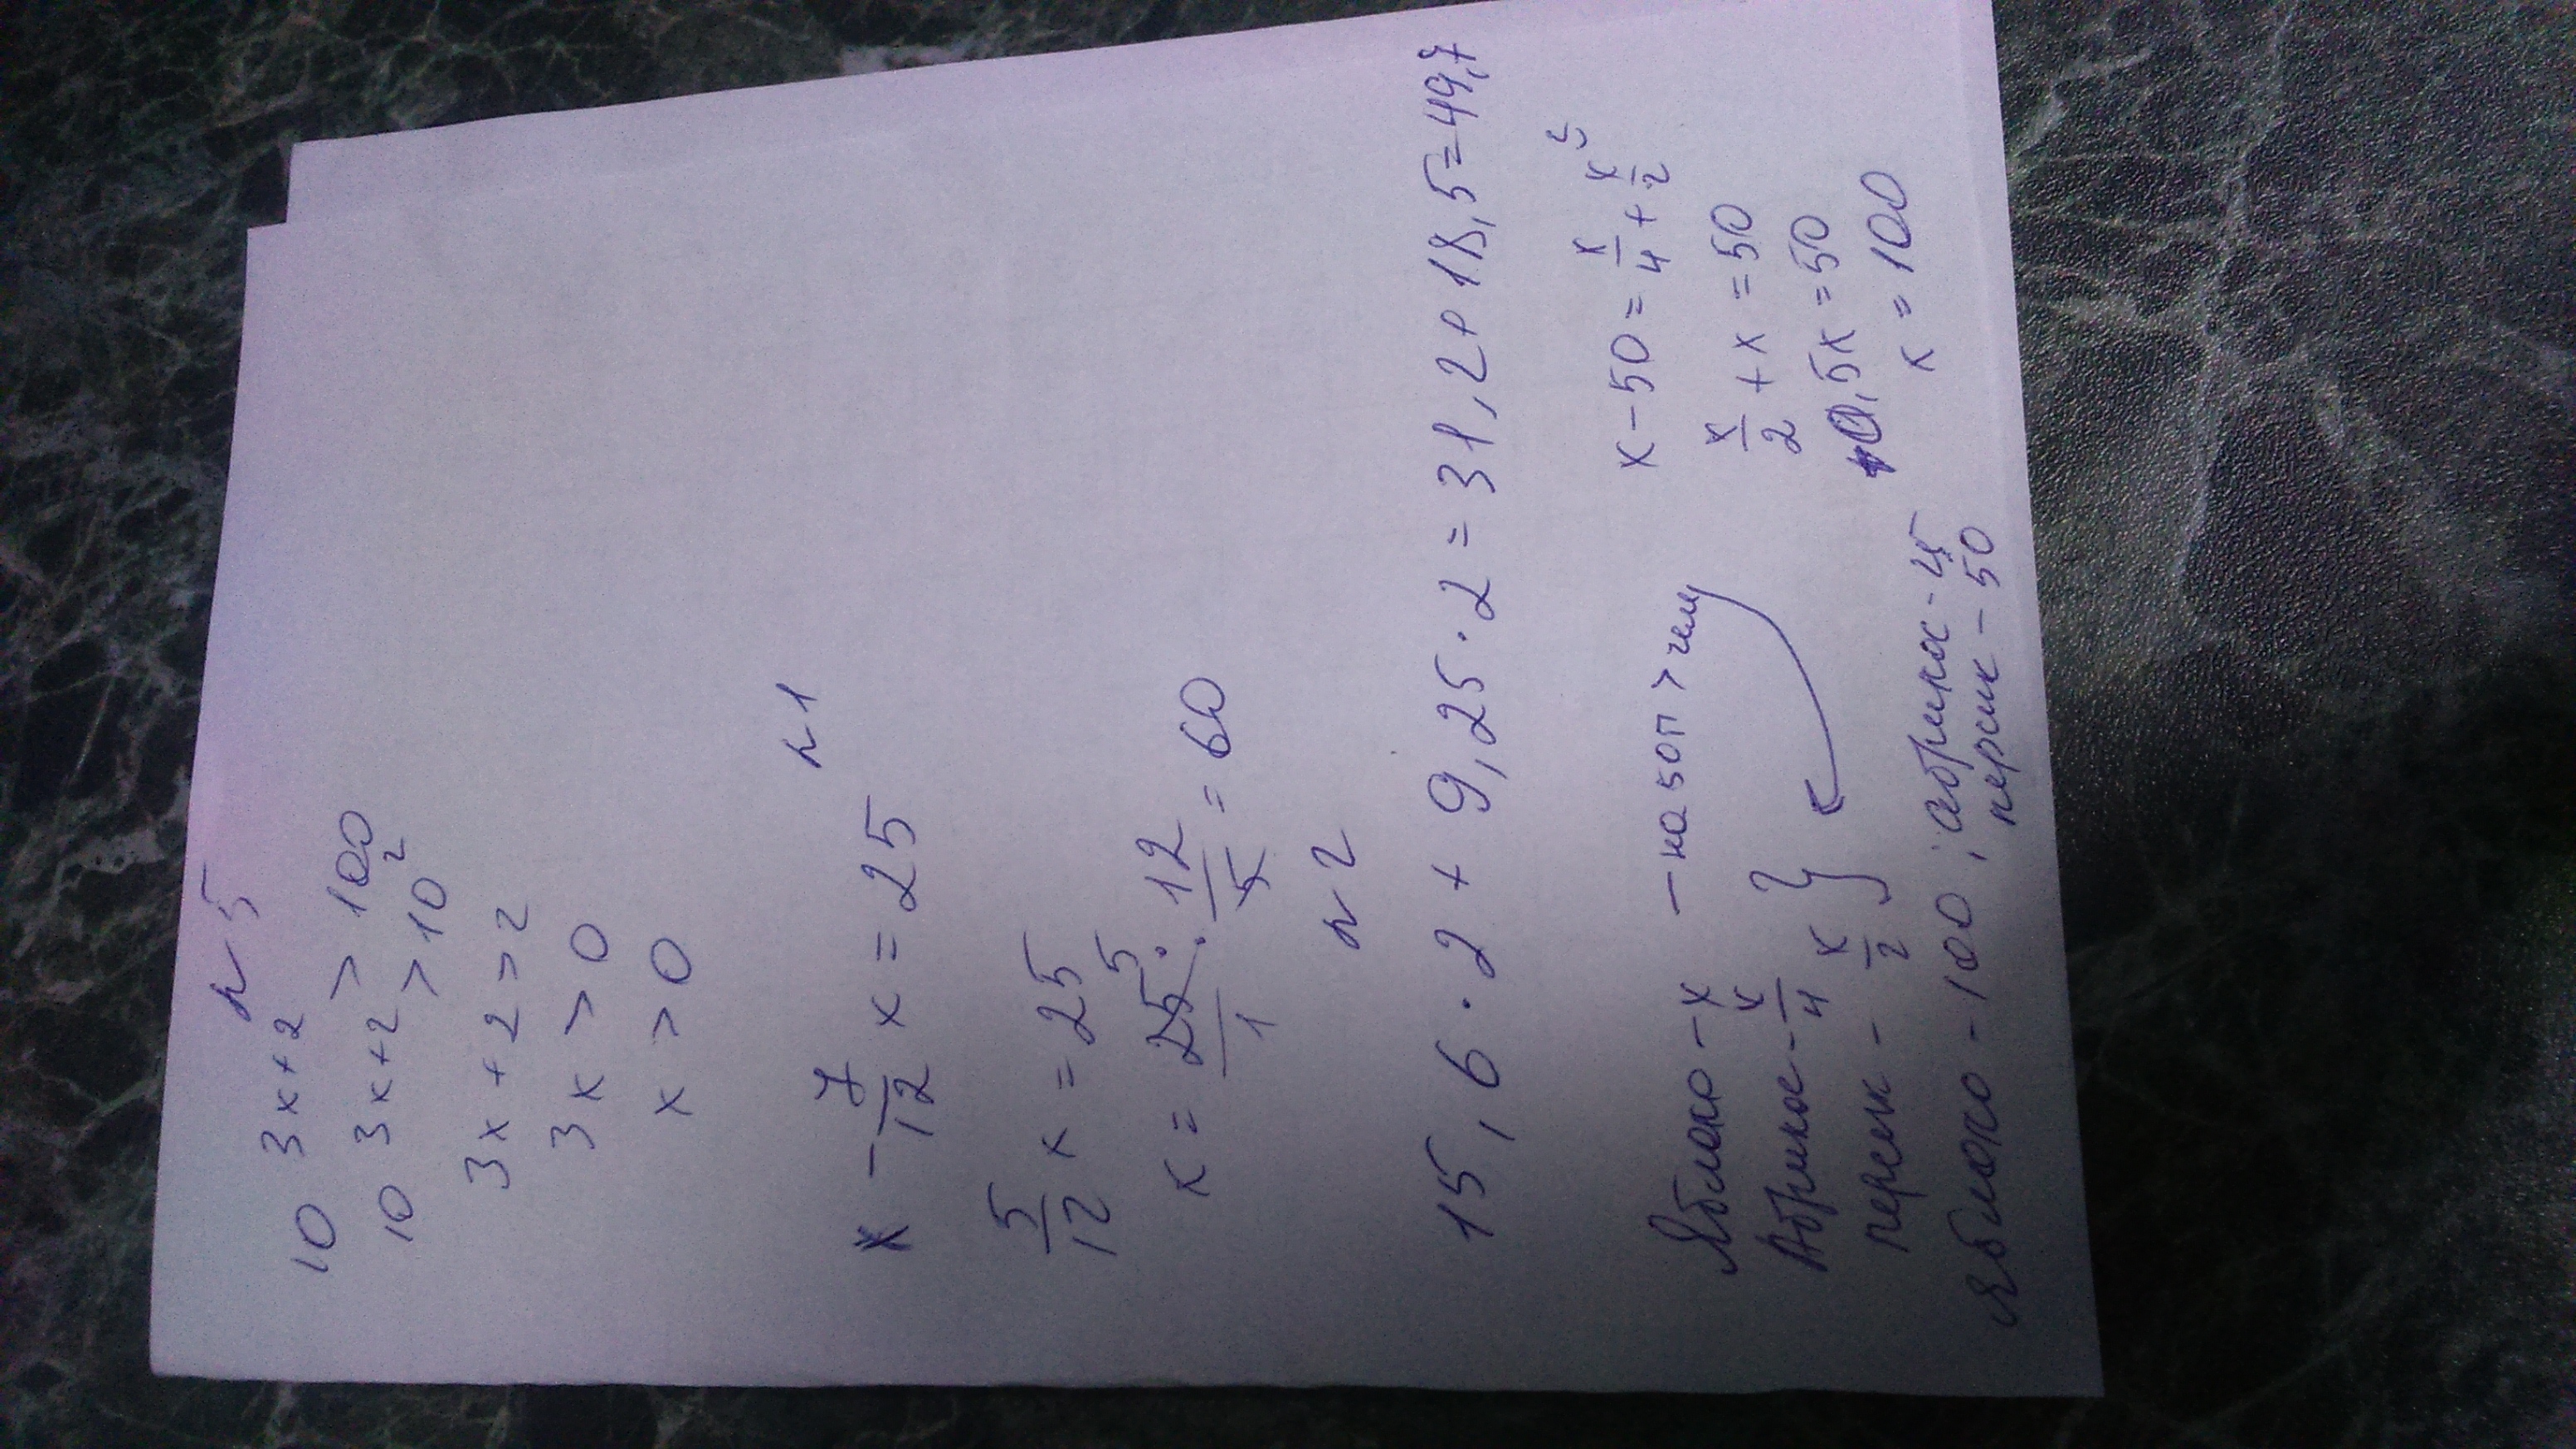 №5
10^{3x+2} > 100
10^{3x+2} > 10^2
3x + 2 > 2
3x > 0
x > 0
№1
x - 7/12 x = 25
5/12 x = 25
x = 25/1 · 12/5 = 60
№2
15,6 · 2 + 9,25 · 2 = 31,2 + 18,5 = 49,7
Яблоко - x - на 50п > чем
Абрикос - x/4 }
персик - x/2
x - 50 = x/4 + x/2
x/2 + x = 50
0,5x = 50
x = 100
яблоко - 100; абрикос -
персик - 50